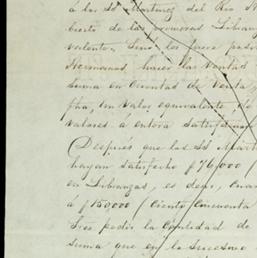 á los SS Martinez del Rio H
bierto de las promesas Libran
Hermanos, hacer las Ventas
suma en Cuentas de Venta,
fha, un valor equivalente, de
valores á entera satisfac
(Después que los SS Mart
hayan satisfecho $76,000 (
en Libranzas, es decir, Cua
á $150,000 (Ciento Cincuenta
Tres pedir la Cantidad de
suma que en lo sucesivo